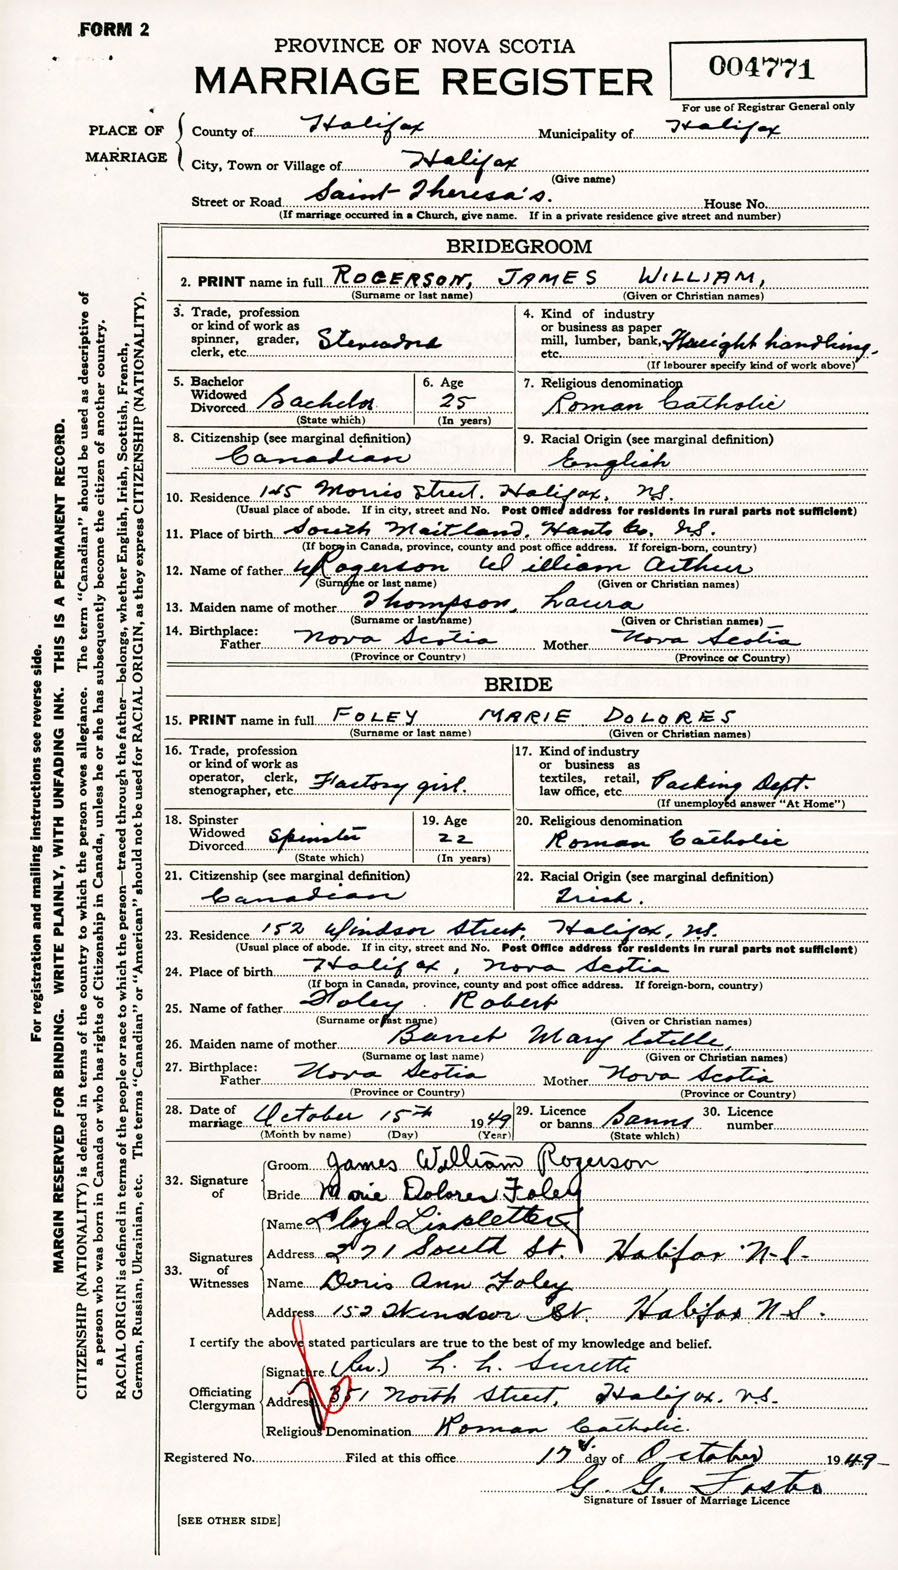 FORM 2
PROVINCE OF NOVA SCOTIA
MARRIAGE REGISTER
004771
For use of Registrar General only
PLACE OF MARRIAGE
County of Halifax Municipality of Halifax
City, Town or Village of Halifax
(Give name)
Street or Road Saint Theresa's. House No.
(If marriage occurred in a Church, give name. If in a private residence give street and number)
BRIDEGROOM
2. PRINT name in full ROGERSON, JAMES WILLIAM,
(Surname or last name) (Given or Christian names)
3. Trade, profession or kind of work as spinner, grader, clerk, etc. Stevedore
4. Kind of industry or business as paper mill, lumber, bank, etc. Freight handling.
(If labourer specify kind of work above)
5. Bachelor Widowed Divorced Bachelor
(State which)
6. Age 25
(In years)
7. Religious denomination
Roman Catholic
8. Citizenship (see marginal definition)
Canadian
9. Racial Origin (see marginal definition)
English
10. Residence 145 Morris Street. Halifax, N.S.
(Usual place of abode. If in city, street and No. Post Office address for residents in rural parts not sufficient)
11. Place of birth South Maitland, Hants Co. N.S.
(If born in Canada, province, county and post office address. If foreign-born, country)
12. Name of father Rogerson William Arthur
(Surname or last name) (Given or Christian names)
13. Maiden name of mother Thompson, Laura
(Surname or last name) (Given or Christian names)
14. Birthplace: Father Nova Scotia Mother Nova Scotia
(Province or Country) (Province or Country)
BRIDE
15. PRINT name in full FOLEY MARIE DOLORES
(Surname or last name) (Given or Christian names)
16. Trade, profession or kind of work as operator, clerk, stenographer, etc. Factory girl.
17. Kind of industry or business as textiles, retail, law office, etc. Packing Dept.
(If unemployed answer "At Home")
18. Spinster Widowed Divorced Spinster
(State which)
19. Age 22
(In years)
20. Religious denomination
Roman Catholic
21. Citizenship (see marginal definition)
Canadian
22. Racial Origin (see marginal definition)
Irish.
23. Residence 152 Windsor Street, Halifax, N.S.
(Usual place of abode. If in city, street and No. Post Office address for residents in rural parts not sufficient)
24. Place of birth Halifax, Nova Scotia
(If born in Canada, province, county and post office address. If foreign-born, country)
25. Name of father Foley Robert
(Surname or last name) (Given or Christian names)
26. Maiden name of mother Mary Estelle
(Surname or last name) (Given or Christian names)
27. Birthplace: Father Nova Scotia Mother Nova Scotia
(Province or Country) (Province or Country)
28. Date of marriage October 15th 1949
(Month by name) (Day) (Year)
29. Licence or banns Banns
(State which)
30. Licence number
32. Signature of
Groom James William Rogerson
Bride Marie Dolores Foley
33. Signatures of Witnesses
Name Lloyd Linkletter
Address 271 South St. Halifax N.S.
Name Doris Ann Foley
Address 152 Windsor St. Halifax N.S.
I certify the above stated particulars are true to the best of my knowledge and belief.
Officiating Clergyman
Signature (Rev.) L. L. Surette
Address 351 North Street, Halifax, N.S.
Religious Denomination Roman Catholic.
Registered No. Filed at this office 17th day of October 1949
G. G. Foster
Signature of Issuer of Marriage Licence
[SEE OTHER SIDE]
For registration and mailing instructions see reverse side.
MARGIN RESERVED FOR BINDING. WRITE PLAINLY, WITH UNFADING INK. THIS IS A PERMANENT RECORD.
CITIZENSHIP (NATIONALITY) is defined in terms of the country to which the person owes allegiance. The term "Canadian" should be used as descriptive of
a person who was born in Canada or who has rights of Citizenship in Canada, unless he or she has subsequently become the citizen of another country.
RACIAL ORIGIN is defined in terms of the people or race to which the person—traced through the father—belongs, whether English, Irish, Scottish, French,
German, Russian, Ukrainian, etc. The terms "Canadian" or "American" should not be used for RACIAL ORIGIN, as they express CITIZENSHIP (NATIONALITY).